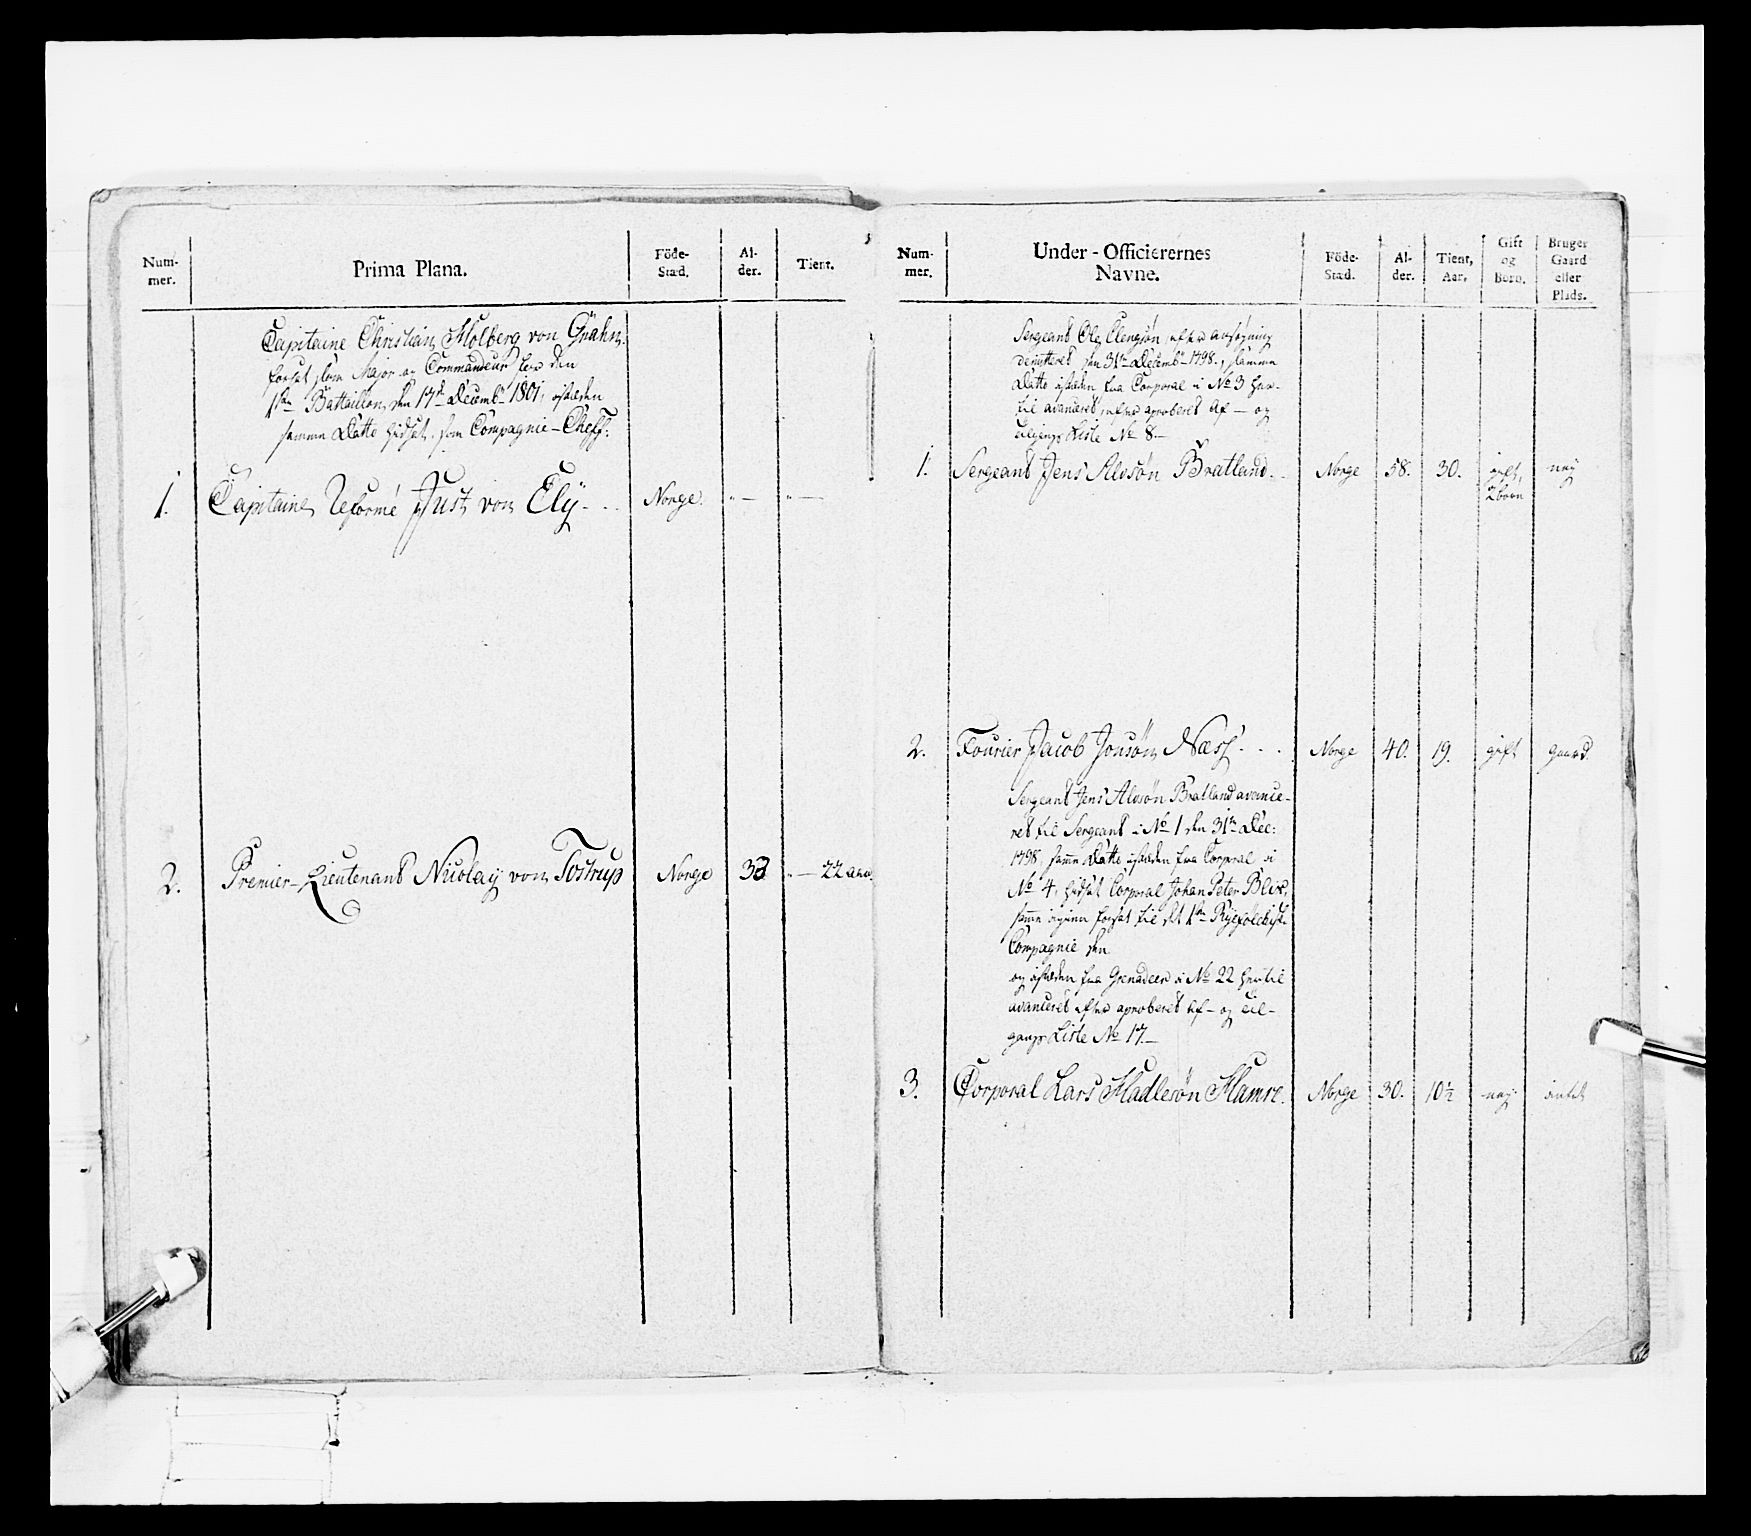 Num-
mer.
Prima Plana.
Föde-
Stæd.
Al-
der.
Tient.
Capitaine Christian Holberg von Gnahn
forsat som Major og Commandeur for den
1ste Battaillon den 17de Decembr 1801, isteden
samme Datto hidsat som Compagnie-Cheff:
1. Capitaine Reformé Just von Elÿ - . . Norge. " — " —
2. Premier-Lieutenant Nicolay von Tostrup Norge 38 " — 22 aar.
Num-
mer.
Under-Officierernes
Navne.
Föde-
Stæd.
Al-
der.
Tient,
Aar.
Gift
og
Børn.
Bruger
Gaard
eller
Plads.
Sergeant Ole Elengsøn, efter ansøgning
den 31te Decembr 1798, samme
Datto isteden fra Corporal i No 3 her-
til avanceret, efter aproberet Af- og
Liste No 8.—
1. Sergeant Jens Alvsøn Bratland. Norge 58. 30. gift, neÿ
2 børn
2. Fourier Jacob Jonsøn Næss - . . Norge 40. 19. gift gaard.
Sergeant Jens Alvsøn Bratland avance-
ret til Sergeant i No 1 den 31te Dec:
1798, samme Datto isteden fra Corporal i
No 4, hidsat Corporal Johan Peter Blix,
samme igien forsat til det 1ste
Compagnie den
og isteden fra Grenadeer i No 22 hertil
avanceret efter aproberet Af- og Til-
gangs Liste No 17.—
3. Corporal Lars Hadlesøn Hamre. Norge 30. 10½ neÿ intet